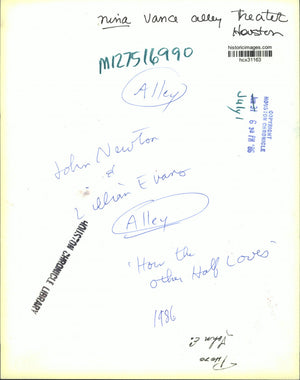 nina Vance alley Theater
Houston
historicimages.com
hcx31163
M127516990
Alley
COPYRIGHT
HOUSTON CHRONICLE
July 1
John Newton
&
Lillian Evans
Alley
HOUSTON CHRONICLE LIBRARY
'How the
other Half Loves'
1986
John C.